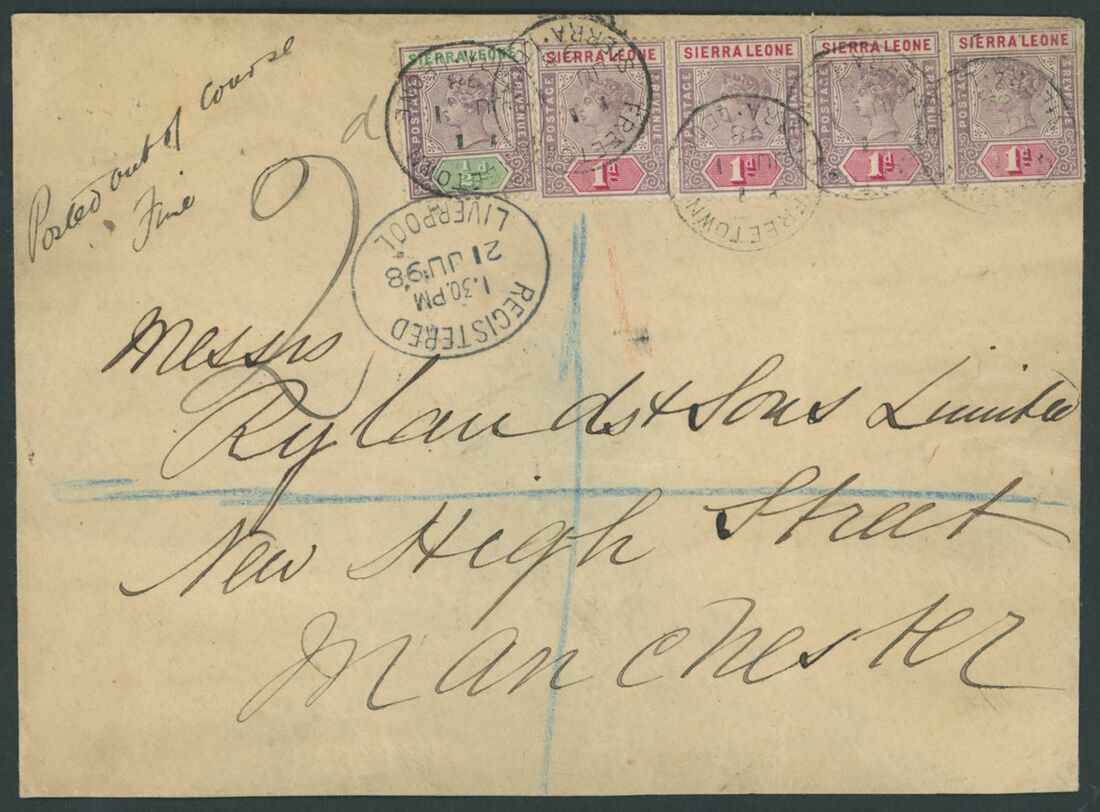 Posted out of course
Fine
d
2
SIERRA LEONE
POSTAGE & REVENUE
½d
SIERRA LEONE
POSTAGE & REVENUE
1d
SIERRA LEONE
POSTAGE & REVENUE
1d
SIERRA LEONE
POSTAGE & REVENUE
1d
SIERRA LEONE
POSTAGE & REVENUE
1d
FREETOWN
REGISTERED
1.30 PM
21 JU 98
LIVERPOOL
Messrs
Rylands & Sons Limited
New High Street
Manchester